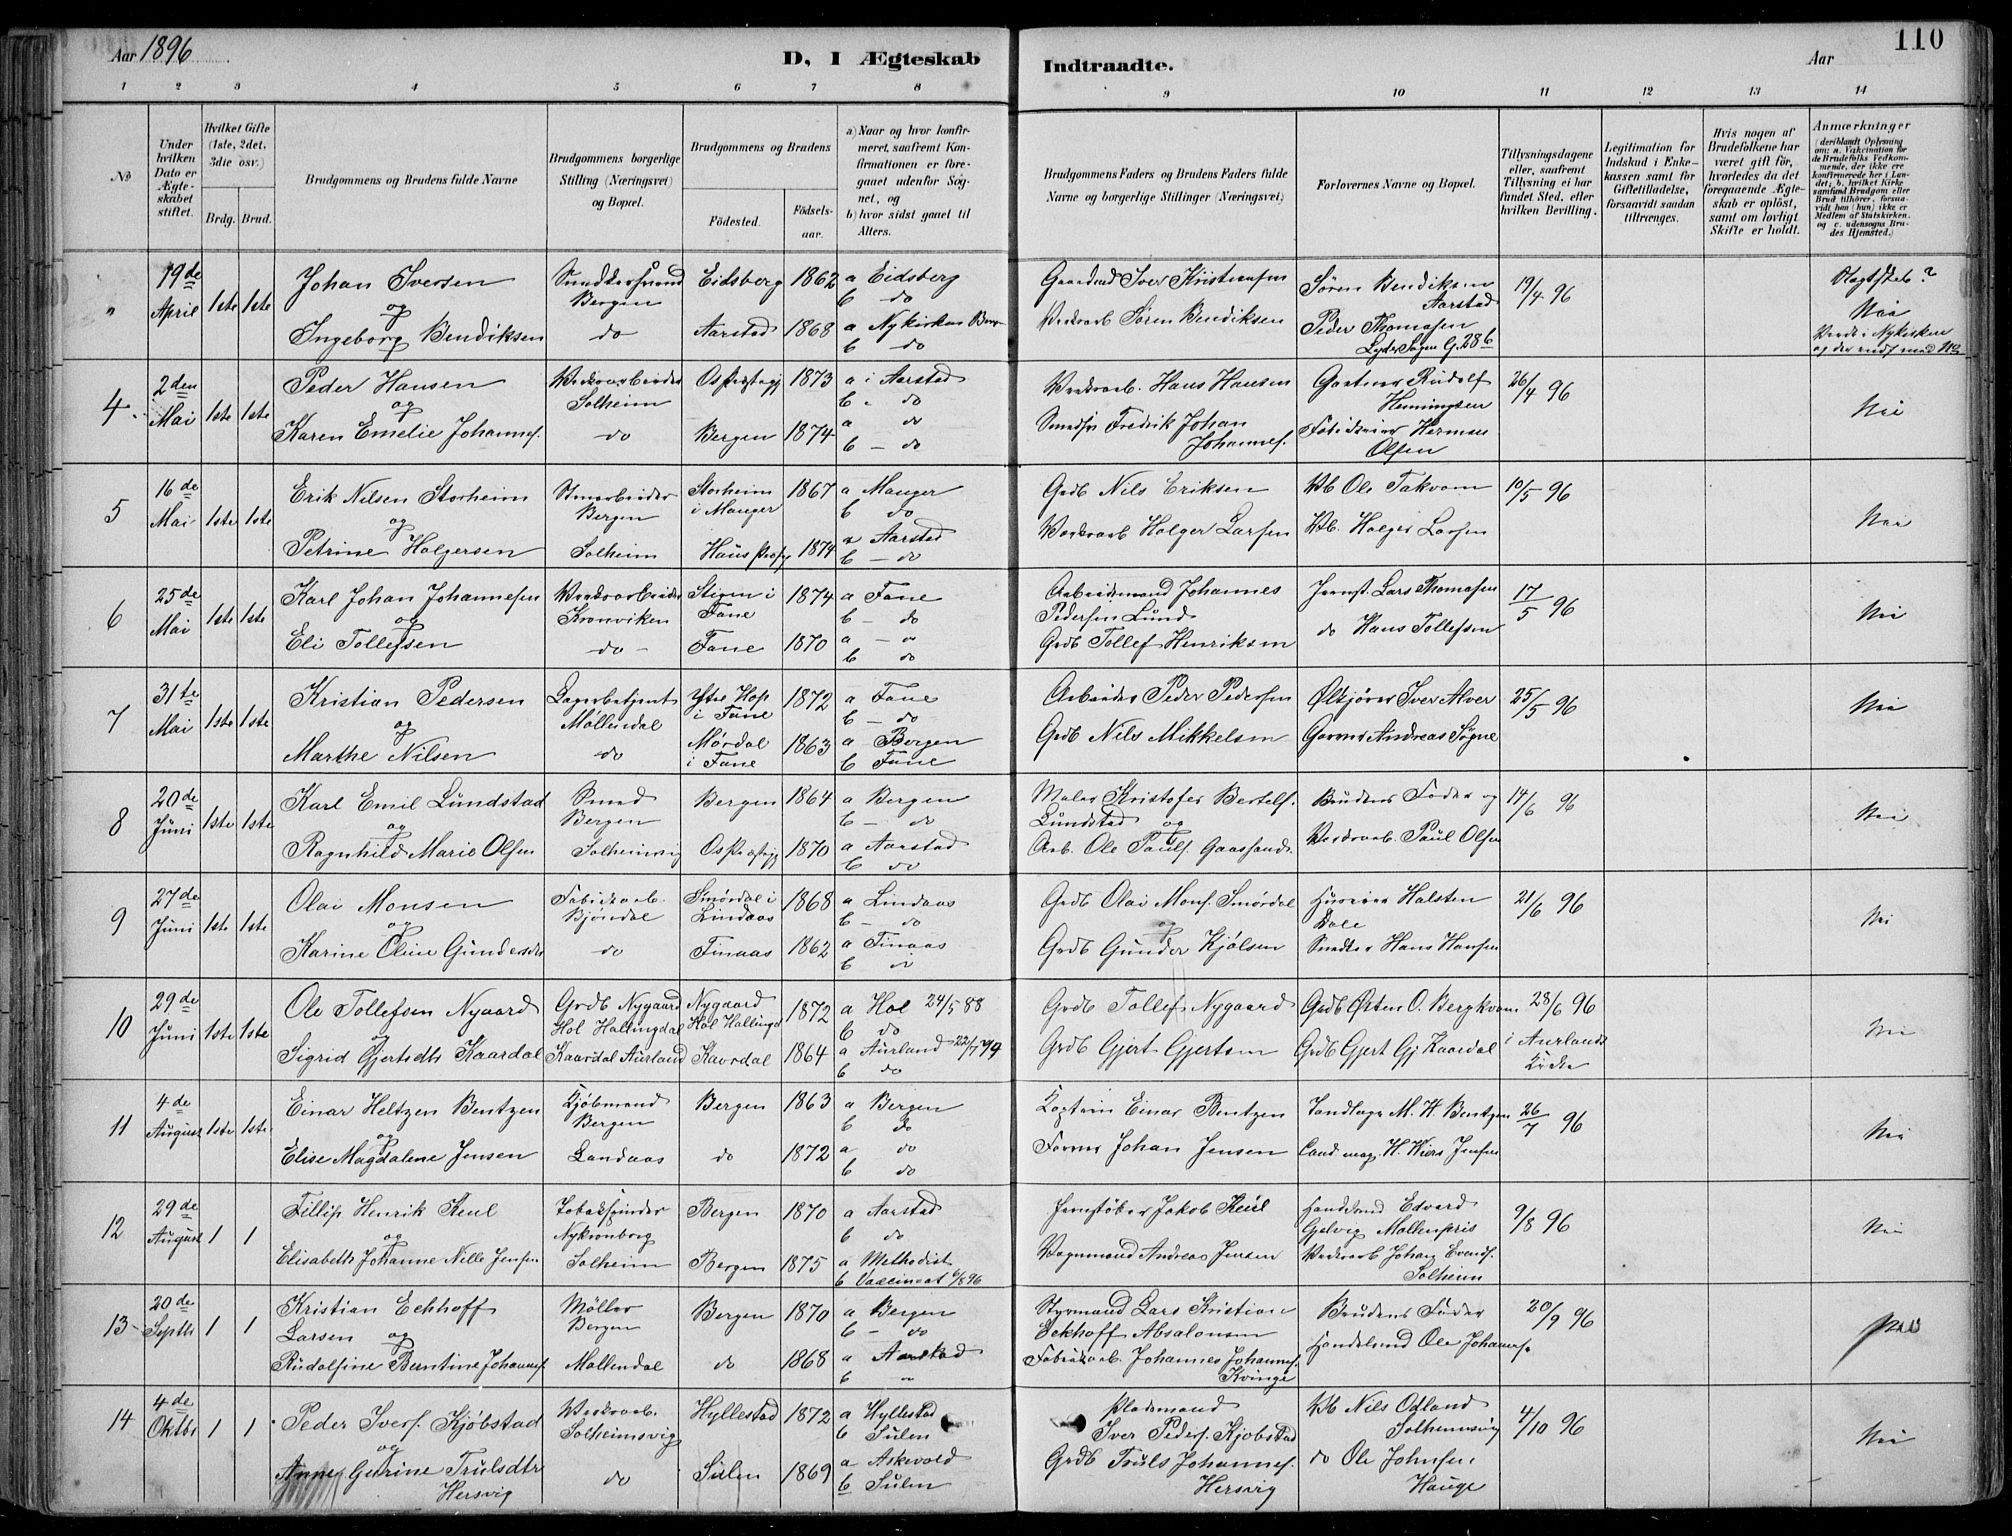 Aar 1896
D, I Ægteskab Indtraadte.
Aar
110
1 2 3 4 5 6 7 8 9 10 11 12 13 14
№
Under hvilken Dato er Ægteskabet stiftet.
Hvilket Gifte (1ste, 2det, 3die osv.)
Brdg. Brud.
Brudgommens og Brudens fulde Navne
Brudgommens borgerlige Stilling (Næringsvei) og Bopæl.
Brudgommens og Brudens
Fødested.
Fødsels-aar.
a) Naar og hvor konfirmeret, saafremt Konfirmationen er foregaaet udenfor Sognet, og
b) hvor sidst gaaet til Alters.
Brudgommens Faders og Brudens Faders fulde Navne og borgerlige Stillinger (Næringsvei)
Forlovernes Navne og Bopæl.
Tillysningsdagene eller, saafremt Tillysning ei har fundet Sted, efter hvilken Bevilling.
Legitimation for Indskud i Enkekassen samt for Giftetilladelse, forsaavidt saadan tiltrænges.
Hvis nogen af Brudefolkene har været gift før, hvorledes da det foregaaende Ægteskab er opløst, samt om lovligt Skifte er holdt.
Anmærkninger (deriblandt Oplysning om: a. Vakcination for de Brudefolks Vedkommende, der ikke ere konfirmerede her i Landet; b. hvilket Kirkesamfund Brudgom eller Brud tilhører, forsaavidt han (hun) ikke er Medlem af Statskirken, og c. udensogns Brudes Hjemsted.)
19de April 1ste 1ste Johan Iversen Bergen Eidsberg 1862 a Eidsberg b do
og
Ingeborg Bendiksen do Aarstad 1868 a Nykirken b do
Gaardmd Iver Kristiansen
Søren Bendiksen Aarstad
19/4 96
Værksarb Søren Bendiksen
Peder Thomasen Lyder Sagens G. 28 b
Slægtskab? Nei
4 2den Mai 1ste 1ste Peder Hansen Værksarbeider Solheim Os Præstegj 1873 a i Aarstad b - do
og
Karen Emelie Johannes. do Bergen 1874 a do b - do
Værksarb. Hans Hansen
Gartner Rudolf Hemingsen
26/4 96
Smedsv Fredrik Johan Johannes.
Herman Olsen
Nei
5 16de Mai 1ste 1ste Erik Nilsen Storheim Bergen Storheim i Manger 1867 a Manger b do
og
Petrine Holgersen Solheim Haus Præstgj 1874 a Aarstad b - do
Grdb Nils Eriksen
Vb Ole Takvam
10/5 96
Værksarb Holger Larsen
Vb. Holger Larsen
Nei
6 25de Mai 1ste 1ste Karl Johan Johannesen Værksarbeider Kronviken Stien i Fane 1874 a Fane b - do
og
Eli Tollefsen do Fane 1870 a - " b do
Arbeidsmand Johannes Pedersen Lund
Jernst. Lars Thomasen
17/5 96
Grdb Tollef Henriksen
do Hans Tollefsen
Nei
7 31te Mai 1ste 1ste Kristian Pedersen Lagerbetjent Møllendal Ytre Hop i Fane 1872 a Fane b - do
og
Marthe Nilsen do Mørdal i Fane 1863 a Bergen b Fane
Arbeider Peder Pedersen
Ølkjører Iver Alver
25/5 96
Grdb Nils Mikkelsen
Garver Andreas Søgne
Nei
8 20de Juni 1ste 1ste Karl Emil Lundstad Smed Bergen Bergen 1864 a Bergen b - do
og
Ragnhild Marie Olsen Solheimsvig Os Præstegj 1870 a Aarstad b do
Maler Kristofer Bertels. Lundstad
og
Brudens Fader og
14/6 96
Arb. Ole Pauls. Gaassand
Værksarb Paul Olsen
Nei
9 27de Juni 1ste 1ste Olai Monsen Fabrikarb. Bjøndal Smørdal i Lindaas 1868 a Lindaas b - do
og
Karine Oline Gundersdtr do Finaas 1862 a Finaas b "
Grdb Olai Mons. Smørdal
og
Halsten Dale
21/6 96
Grdb Gunder Kjølsen
Hans Hansen
Nei
10 29de Juni 1ste 1ste Ole Tollefsen Nygaard Grdb Nygaard Hol Hallingdal Nygaard Hol Hallingd 1872 a Hol 24/5 88 b do
og
Sigrid Gjertsdtr Kaardal Kaardal Aurland Kaardal 1864 a Aurland 22/7 79 b do
Grdb Tollef Nygaard
Grdb Østen O. Bergkvam
28/6 96
Grdb Gjert Gjertsen
Grdb Gjert Gj Kaardal
i Aurlands Kirke
Nei
11 4de August 1ste 1ste Einar Heltzen Bentzen Kjøbmand Bergen Bergen 1863 a Bergen b do
og
Elise Magdalene Jensen Landaas do 1872 a do b do
Kaptein Einar Bentzen
Tandlæge M. H. Bentzen
26/7 96
Farver Johan Jensen
Cand mag. H. Wiers Jensen
Nei
12 29de August 1 1 Fillip Henrik Keul Tobakspinder Nykronborg Bergen 1870 a Aarstad b do
og
Elisabeth Johanne Nille Jensen Solheim Bergen 1875 a Methodist b Vaccineret 6/8 96
Jernstøber Jakob Keul
Handelsmd Edvard Gelvig Møllenpris
9/8 96
Vognmand Andreas Jensen
Værksarb Johan Evends. Solheim
Nei
13 20de Septbr 1 1 Kristian Eckhoff Larsen Møller Bergen Bergen 1870 a Bergen b - do
og
Rudolfine Berntine Johannes. Møllendal do 1868 a Aarstad b "
Styrmand Lars Kristian Eckhoff Absalonsen
Brudens Fader
20/9 96
Fabrikarb. Johannes Johannes. Kvinge
Handelsmd Ole Johannes.
Nei
14 4de Oktbr 1 1 Peder Ivers. Kjøbstad Værksarb. Solheimsvig Hyllestad 1872 a Hyllestad b Sulen
og
Anne Gurine Trulsdtr Hersvig do Sulen 1869 a Askevold b Sulen
Pladsmand Iver Peders. Kjøbstad
Vb Nils Odland Solheimsvig
4/10 96
Grdb Truls Johannes. Hersvig
do Ole Johnsen Hauge
Nei